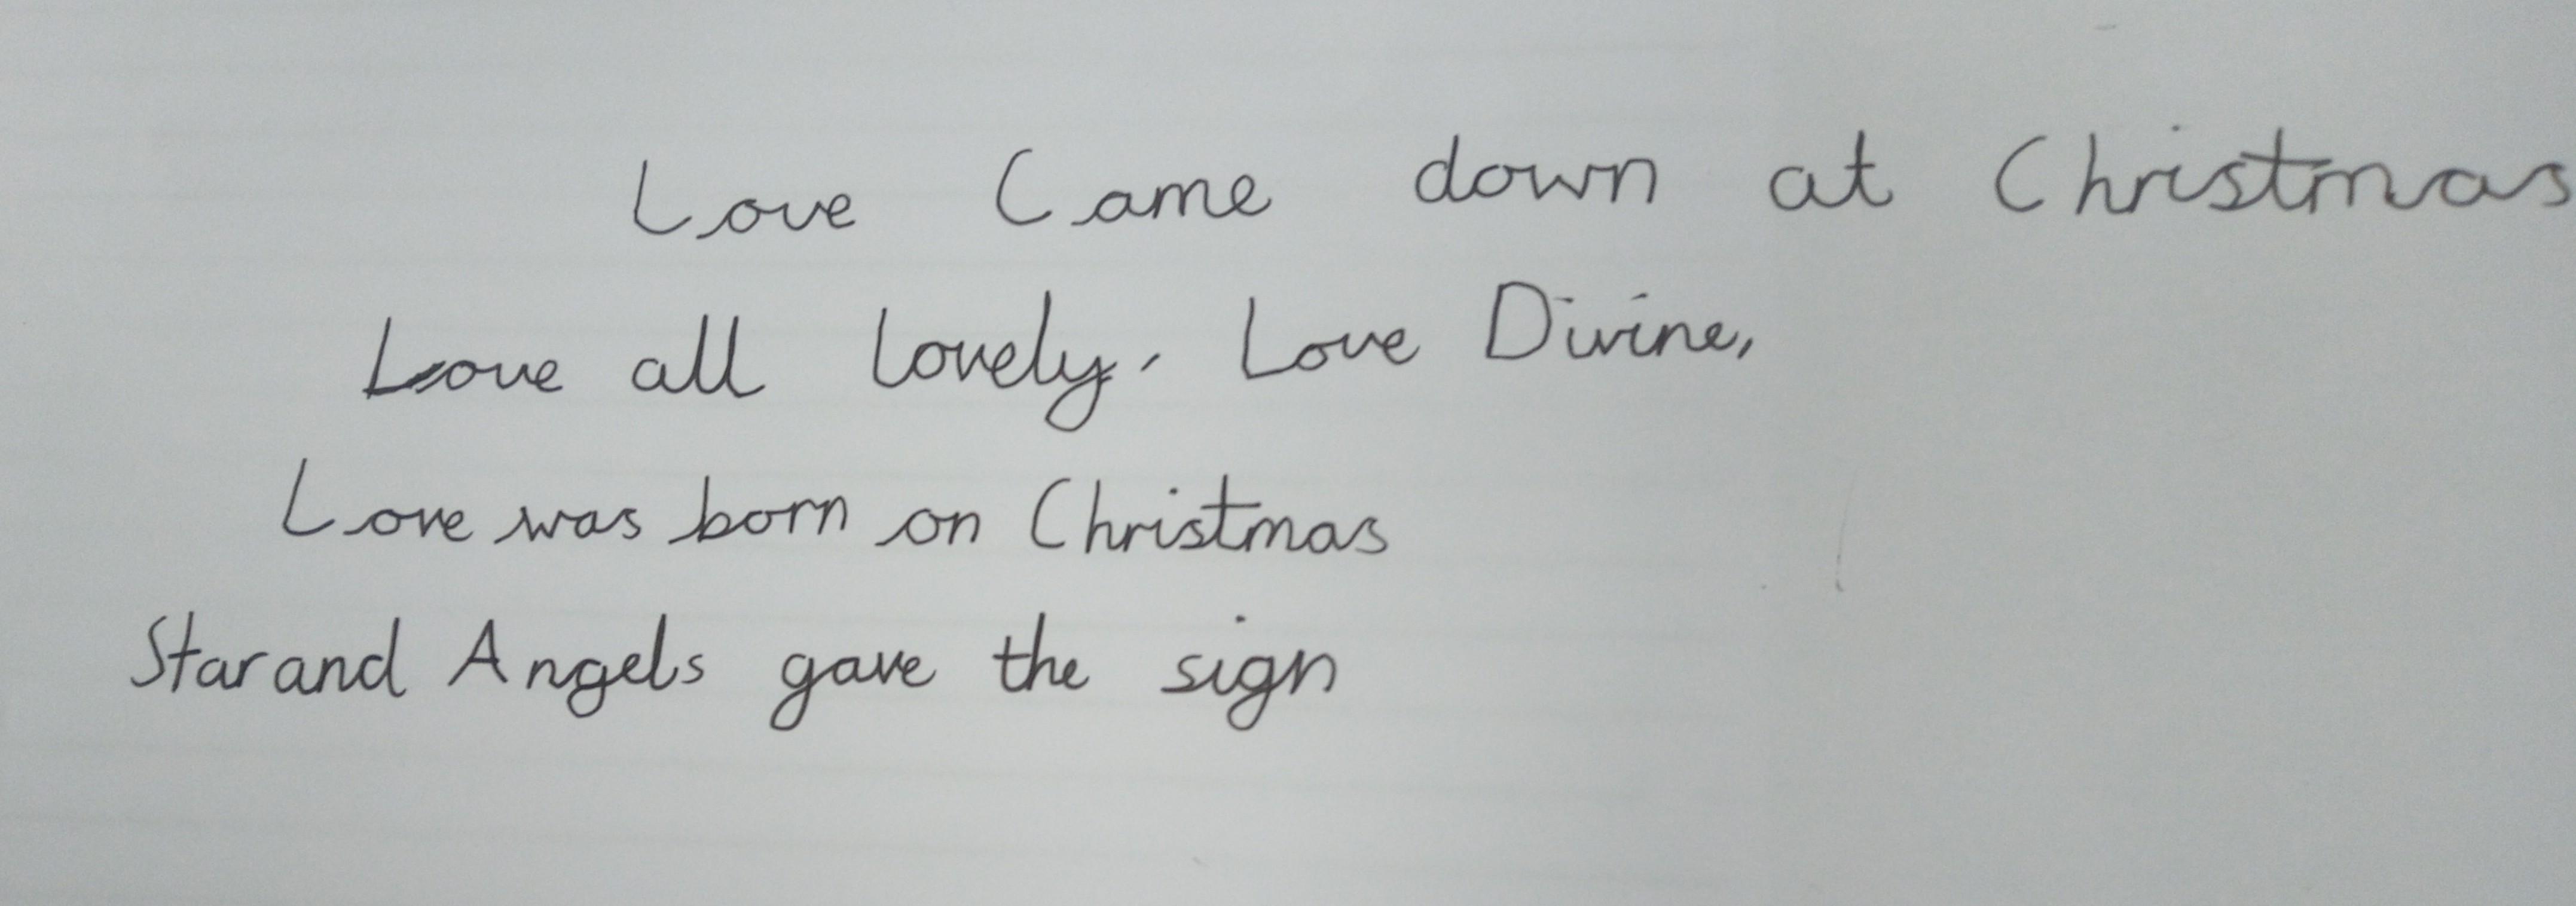 Love Came down at Christmas
Love all lovely, Love Divine,
Love was born on Christmas
Star and Angels gave the sign